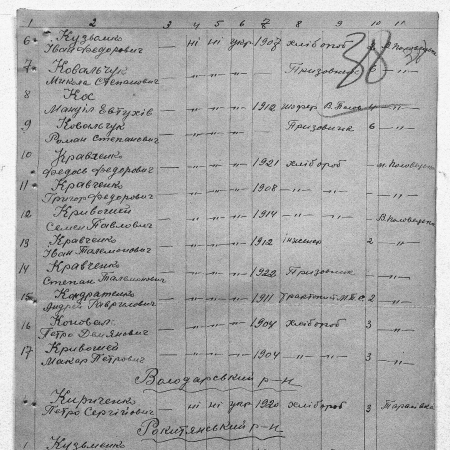 1 2 3 4 5 6 7 8 9 10 11
6 Кузьмик
Іван Федорович — ні ні укр 1907 хлібороб
38
7 Ковальчук
Микола Степанович — " " " Призовник 6 — " —
8 Кос
Мануїл Евтухів — " " " 1912 шофер
9 Ковальчук
Роман Степанович — " " " Призовник 6 — " —
10 Кравченко
Федось Федорович — " " " 1921 хлібороб
11 Кравченко
Григор Федорович — " " " 1908 — " — — " —
12 Кривошей
Семен Павлович — " " " 1914 — " —
13 Кравченко
Іван Талемонович — " " " 1912 інженер 2 — " —
14 Кравченко
Степан Талемонович — " " " 1922 Призовник — " —
15 Кондратенко
Андрій Гаврилович — " " " 1911 2 — " —
16 Коновал
Петро Демянович — " " " 1904 хлібороб 3 — " —
17 Кривошей
Макар Петрович — " " " 1904 — " — 3 — " —
Володарський р-н
Кириченко
Петро Сергійович — ні ні укр 1920 хлібороб 3 Таращанка
Рокитянський р-н
1 Кузьменко